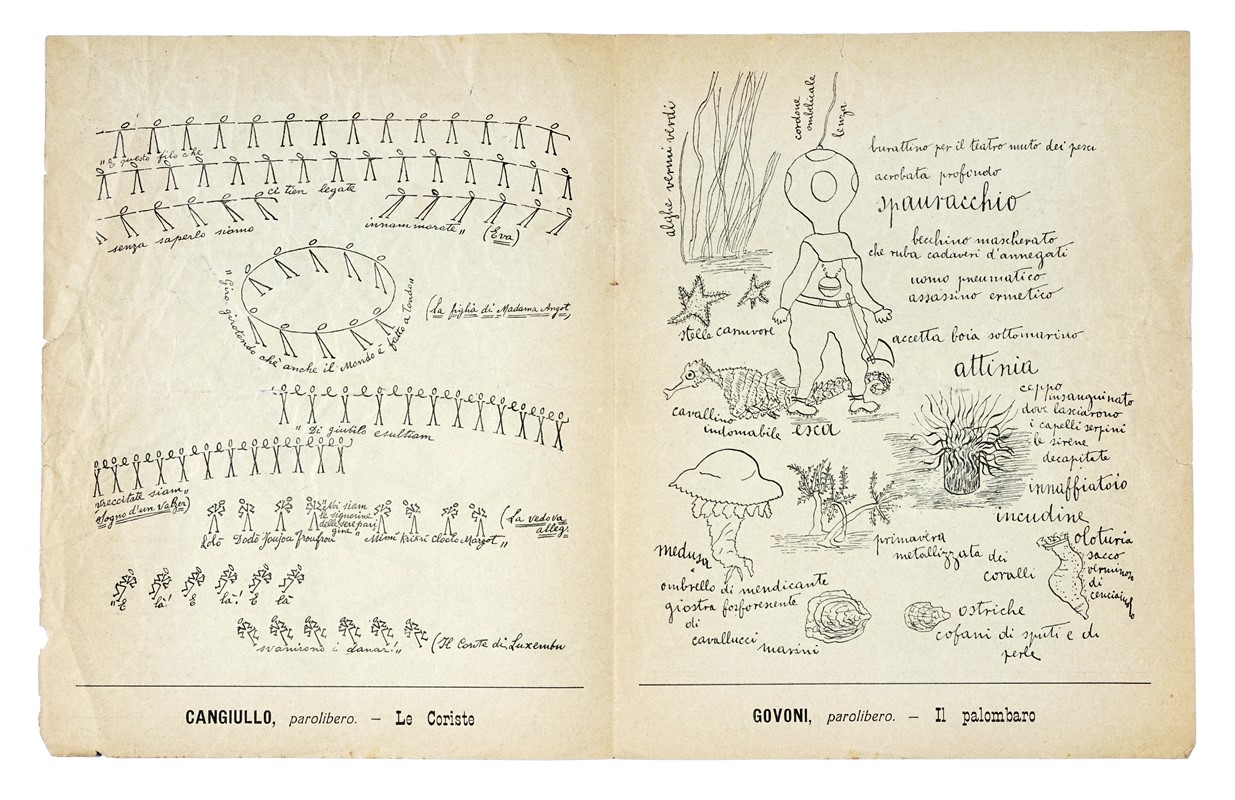 "E questo filo che
ci tien legate
senza saperlo siamo
innammorate" (Eva)
"Gira, girotondo chè anche il Mondo é fatto a tondo"
(La figlia di Madama Angot)
"Di giubilo esultiam
(Sogno d'un valzer)
"Noi siam
le signorine
delle sere pari
gine"
Lolò Dodò Joujou Froufrou Mimì Krikrì Clocló Margot"
(La vedova
alleg.
"E là! E là! E là
svanirono i danar!" (Il Conte di Luxembu
CANGIULLO, parolibero. — Le Coriste
alghe vermi verdi
cordone
ombelicale
lenza
burattino per il teatro muto dei pesci
acrobata profondo
spauracchio
becchino mascherato
che ruba cadaveri d'annegati
uomo pneumatico
assassino ermetico
stelle carnivore
accetta boia sottomarino
attinia
ceppo
insanguinato
dove lasciarono
i capelli serpini
le sirene
decapitate
innaffiatoio
cavallino
indomabile
esca
incudine
medusa
ombrello di mendicante
giostra forforesente
di
cavallucci
marini
primavera
metallizzata dei
coralli
oloturia
sacco
verminoso
di
ostriche
cofani di sputi e di
perle
GOVONI, parolibero. — Il palombaro